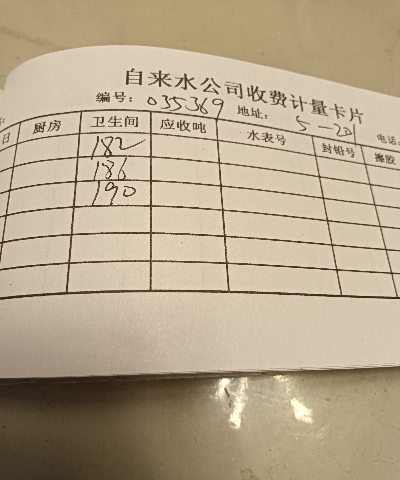 自来水公司收费计量卡片
编号: 035369 地址: 5-201 电话:
日 厨房 卫生间 应收吨 水表号 封铅号 橡胶
182
186
190